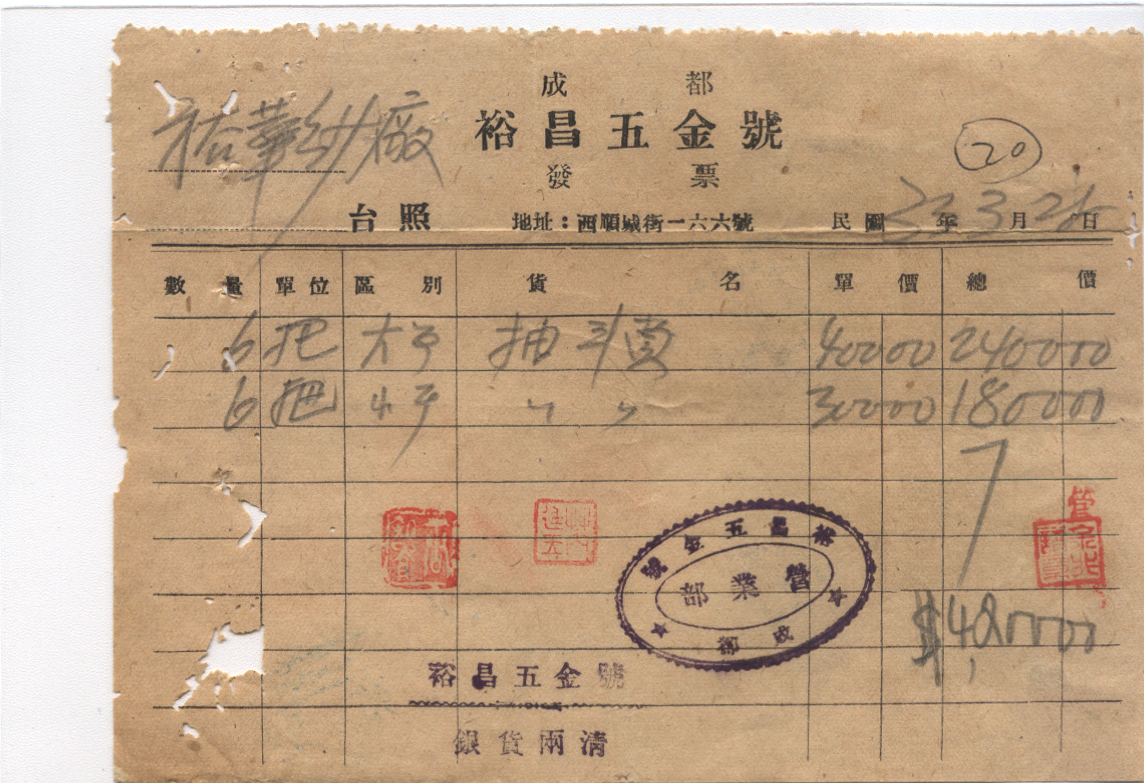 成都
裕昌五金號
發票
裕華紗廠
20
台照 地址：西順城街一六六號 民國 年 3 月 日
數量 單位 區別 貨名 單價 總價
6 把 抽斗 40000 240000
6 把 〃 〃 30000 180000
裕昌五金號
營業部
成都
$420000
裕昌五金號
銀貨兩清